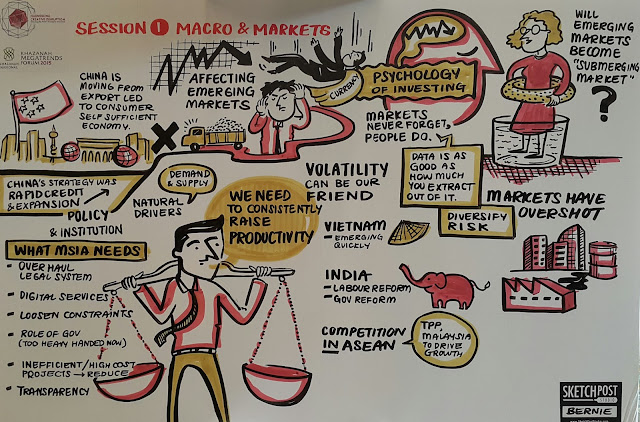 SESSION 1 MACRO & MARKETS
KHAZANAH
MEGATRENDS
FORUM 2015
CHINA IS
MOVING FROM
EXPORT LED
TO CONSUMER
SELF SUFFICIENT
ECONOMY.
AFFECTING
EMERGING
MARKETS
CURRENCY
PSYCHOLOGY
OF INVESTING
MARKETS
NEVER FORGET,
PEOPLE DO.
WILL
EMERGING
MARKETS
BECOME
"SUBMERGING
MARKET"
?
DATA IS AS
GOOD AS
HOW MUCH
YOU EXTRACT
OUT OF IT.
DIVERSIFY
RISK
MARKETS HAVE
OVERSHOT
CHINA'S STRATEGY WAS
RAPID CREDIT
& EXPANSION
POLICY
& INSTITUTION
DEMAND
& SUPPLY
NATURAL
DRIVERS
VOLATILITY
CAN BE OUR
FRIEND
WE NEED
TO CONSISTENTLY
RAISE
PRODUCTIVITY
WHAT MSIA NEEDS
- OVER HAUL
LEGAL SYSTEM
- DIGITAL SERVICES
- LOOSEN CONSTRAINTS
- ROLE OF GOV
(TOO HEAVY HANDED NOW)
- INEFFICIENT/HIGH COST
PROJECTS → REDUCE
- TRANSPARENCY
VIETNAM
- EMERGING
QUICKLY
INDIA
- LABOUR REFORM
- GOV REFORM
COMPETITION
IN ASEAN
TPP,
MALAYSIA
TO DRIVE
GROWTH
SKETCHPOST
BERNIE